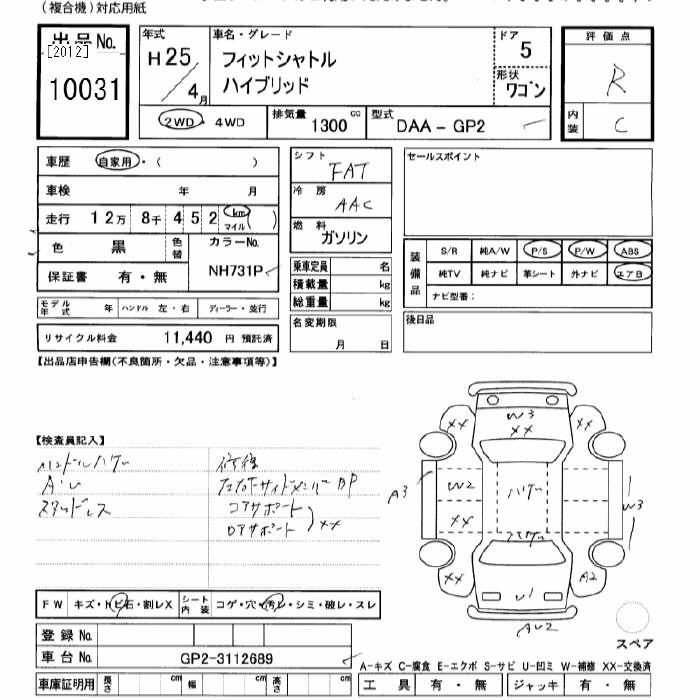 （複合機）対応用紙
出品No.
[2012]
10031
年式
H25/4月
車名・グレード
フィットシャトル
ハイブリッド
ドア
5
形状
ワゴン
2WD・4WD
排気量 1300 cc
型式 DAA-GP2
評価点
R
内装 C
車歴 自家用・（ ）
車検 年 月
走行 12万 8千 452 km マイル ( )
色 黒 色替 カラーNo.
NH731P
保証書 有・無
モデル年式 年 ハンドル 左・右 ディーラー・並行
リサイクル料金 11,440 円 預託済
シフト
FAT
冷房
AAC
燃料
ガソリン
乗車定員 名
積載量 kg
総重量 kg
名変期限
月 日
セールスポイント
装備品
S/R 純A/W P/S P/W ABS
純TV 純ナビ 革シート 外ナビ エアB
ナビ型番：
後日品
【出品店申告欄（不良箇所・欠品・注意事項等）】
【検査員記入】
ハンドルハゲー
A・U
スタッドレス
修復
左右Fサイドメンバー BP
コアサポート
ロアサポート
XX
W3
XX
XX
XX
W2
XX
ハゲー
ハゲー
A3
W3
XX
A2
U1
AU2
スペア
FW キズ・トビ石・割レX
シート内装 コゲ・穴・汚レ・シミ・破レ・スレ
登録No.
車台No. GP2-3112689
A-キズ C-腐食 E-エクボ S-サビ U-凹ミ W-補修 XX-交換済
車庫証明用 長さ cm 幅 cm 高さ cm
工具 有・無 ジャッキ 有・無